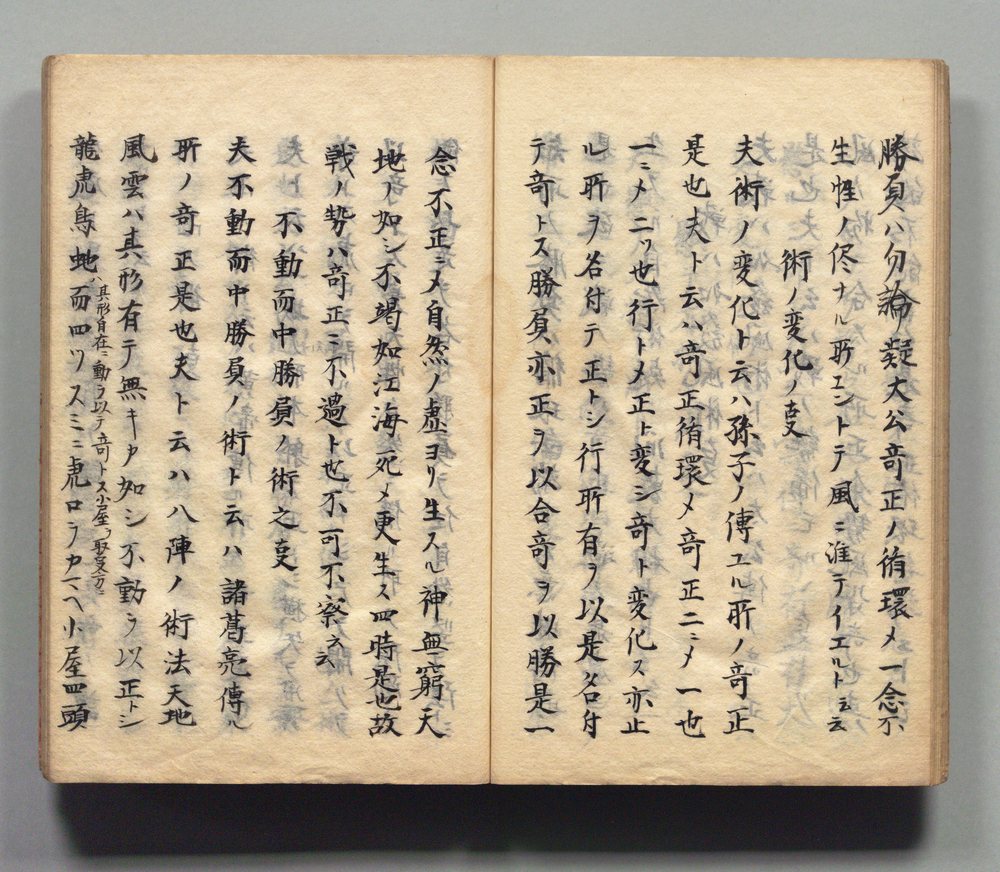 勝負ハ勿論疑大公奇正ノ循環〆一念不
生惟ノ侭ナル所ヱントテ風ニ准テイエルト云云
術ノ変化ノ㕝
夫術ノ変化ト云ハ孫子ノ傳エル所ノ奇正
是也夫ト云ハ奇正循環〆奇正二ニ〆一也
一ニ〆二ツ也行ト〆正ト変シ奇ト変化ス亦止
ル所ヲ名付テ正トシ行所有ヲ以是名付
テ奇トス勝負亦正ヲ以合奇ヲ以勝是一
念不正ニ〆自然ノ虚ヨリ生スル神無窮天
地ノ如シ不竭如江海死〆更生ス四時是也故
戦ノ勢ハ奇正ニ不過ト也不可不察云云
不動而中勝負ノ術之㕝
夫不動而中勝負ノ術ト云ハ諸葛亮傳ル
所ノ奇正是也夫ト云ハ八陣ノ術法天地
風雲ハ其形有テ無キカ如シ不動ヲ以正トシ
龍虎鳥蛇ハ其形自在ニ動ヲ以テ奇トス小屋ヲ取㕝方ニ而四ツスミニ虎口ヲカマヘ小屋四頭